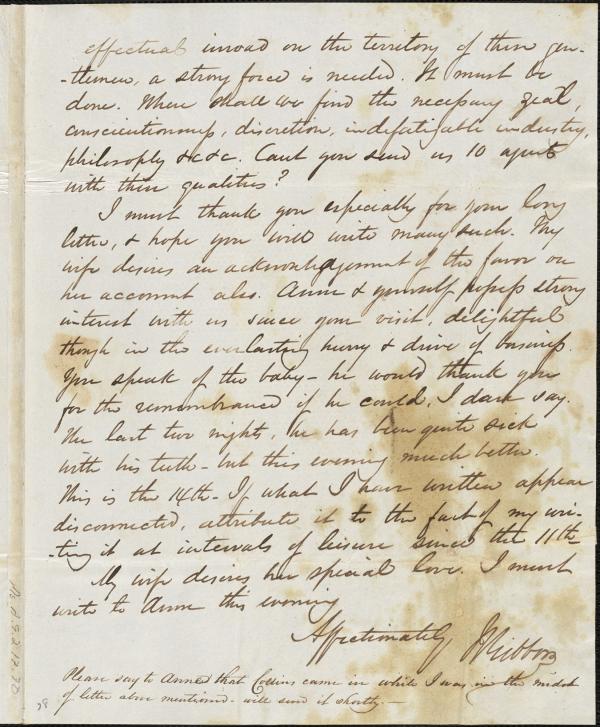 effectual inroad on the territory of these gen-
-tlemen, a strong force is needed. It must be
done. Where shall we find the necessary zeal,
conscientiousness, discretion, indefatigable industry,
philosophy &c &c. Can't you send us 10 agents
with these qualities?
I must thank you especially for your long
letter, & hope you will write many such. My
wife desires an acknowledgement of the favor on
her account also. Anne & yourself possess strong
interest with us since your visit, delightful
though in the everlasting hurry & drive of business.
You speak of the baby - he would thank you
for the remembrance if he could, I dare say.
The last two nights, he has been quite sick
with his teeth - but this evening much better.
This is the 14th - If what I have written appear
disconnected, attribute it to the fact of my wri-
-ting it at intervals of leisure since the 11th
My wife desires her special love. I must
write to Anne this evening
Affectionately JSGibbons
Please say to Anne that Collins came in while I was in the midst
of letter above mentioned - will send it shortly -